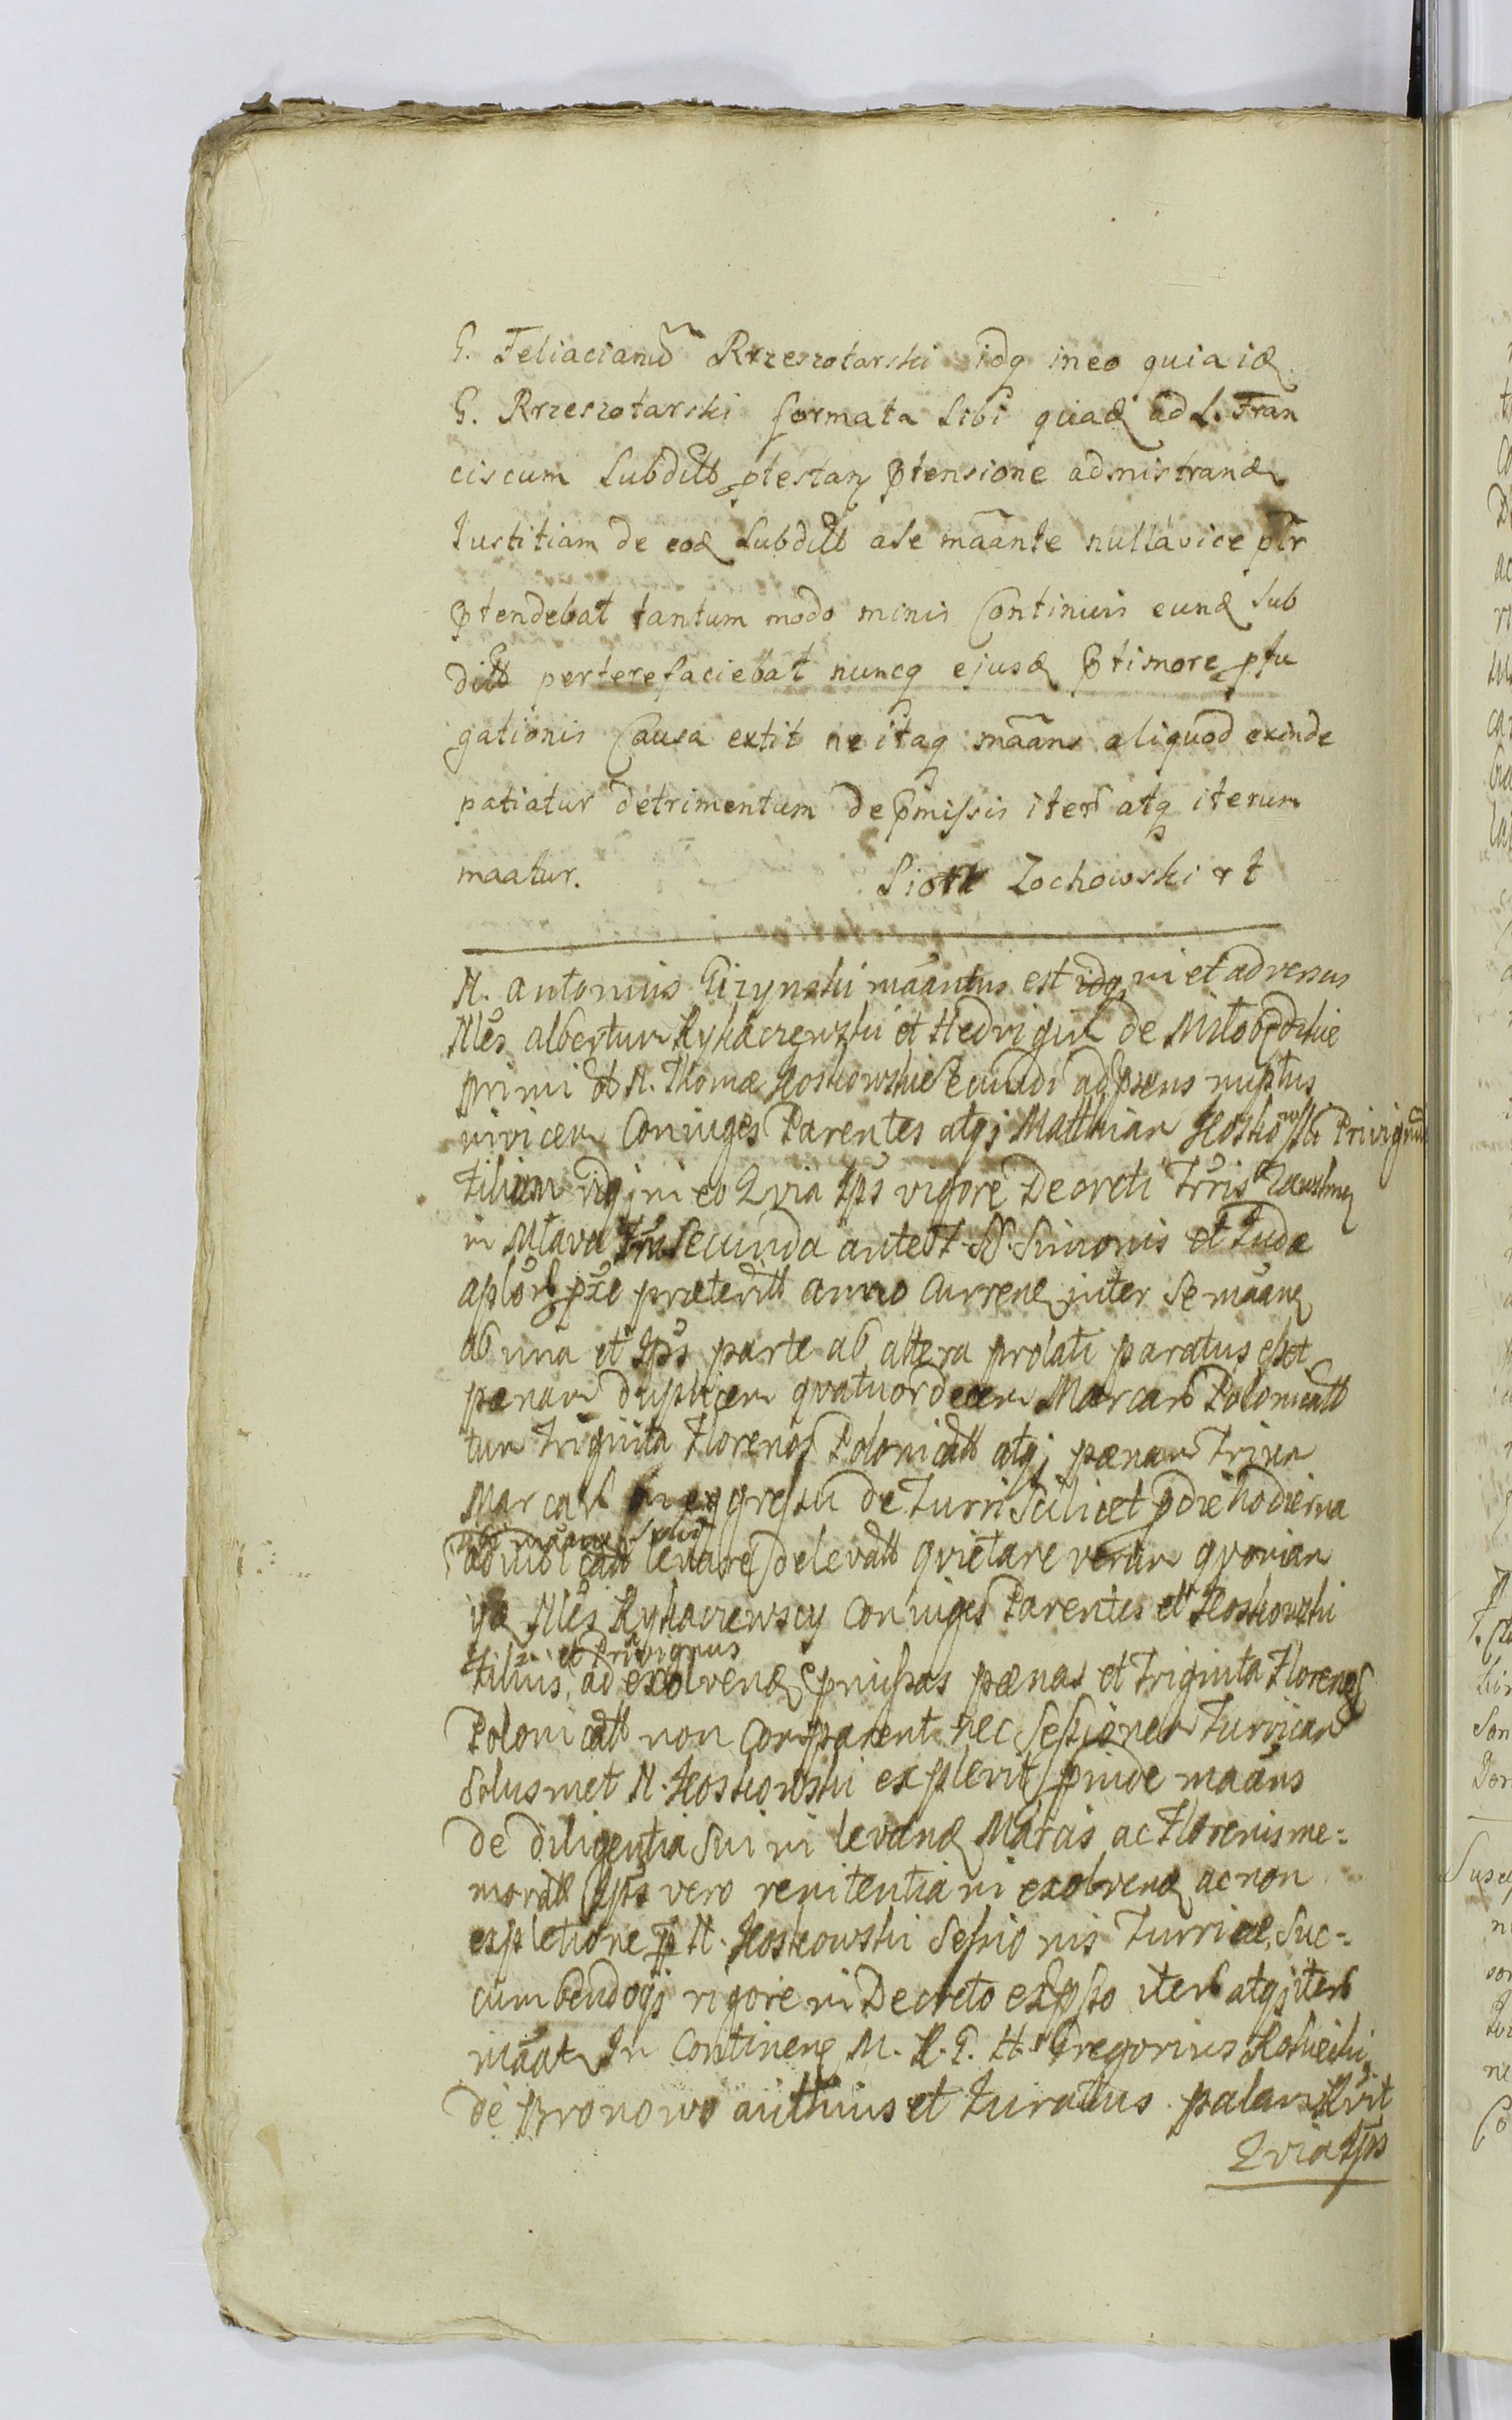 G. Feliacianū Rrzeszotarski idq ineo quia id
G. Rrzeszotarski formata sibi quad ad L. Fran
ciscum Subditū ptestan ptensione admistrand
Iustitiam de eod Subdito ase māante nullavice ptr
ptendebat tantum modo minis Continuis eund Sub
ditū perterefaciebat nuncq ejusd ptimore pfu
gationis Causa extit ne itaq māans aliquod exinde
patiatur detrimentum de pmissis iterū atq iterum
maatur. Piotr Zochowski rt
N. Antonius Girynski māantus est idq in et adversus
Nles albertum Rykaczewski et Hedvigim de Miłobędzkie
primi N. Thomæ Hoskowskie secundi adpræns nuptus
invicem Coniuges Parentes atq Matthiam Hoskowski Privignū
filium idq in eo Qvia Ipsi vigore Decreti Trris Zawskrn
in Mlava fria Secunda ante ft SS. Simonis et Iudæ
aplor pxe præterit anno Curren inter se māan
ab una et Ipsos parte ab altera prolati paratus esset
pœnam duplicem qvatuordecem Marcarū Polonicalū
tum Triginta Florenos Polonicales atq pœnam Trium
Marcarū in eggressu de Turri scilicet pdie hodierna
adiudicatas levare de levatis qvietare verum qvoniam
iid Nles Rykaczewscy Coniuges Parentes et Hoskowski
filius, et Privignus ad exolvend pmissas pœnas et Triginta Florenos
Polonicales non Comparent nec Sessionem Turriam
Solusmet N. Hoskowski explevit pinde māans
de diligentia Sui in levand Marcis ac Florenis me=
moratis Ipsos vero renitentia in exolvend ac non
expletione p N. Hoskowski Sessionis Turriæ, Suc=
cumbendoq rigore in Decreto expsso iterū atq iterū
māatr In Continen M. R. G. H. Gregorius Kosiecki
de Bronowo authus et Iuratus palam Rvit
Qvia Ipse